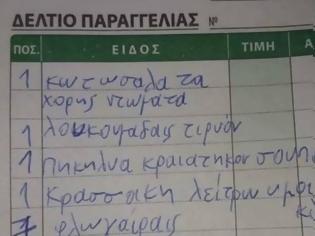 ΔΕΛΤΙΟ ΠΑΡΑΓΓΕΛΙΑΣ №
ΠΟΣ. ΕΙΔΟΣ ΤΙΜΗ Α
1 κωτωσαλατα
χορης ντωματα
1 λουκουμαδας τιριόν
1 πηκηλυα κραιατηκον σουπ
1 Κρασσακη λείτρων ημοι
1 φλωγαίρας